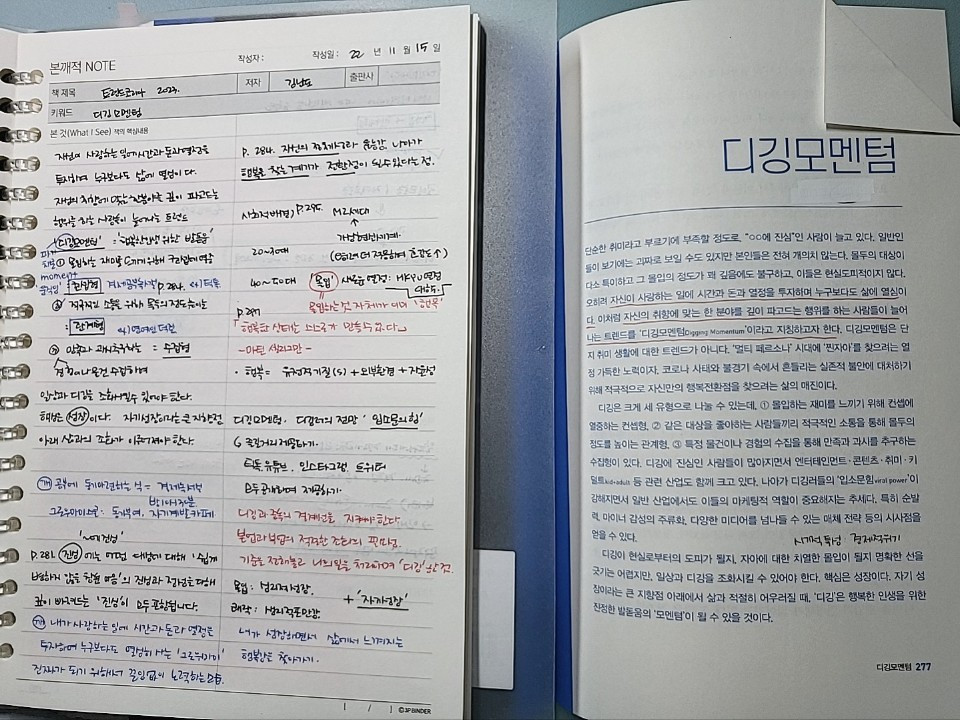 본깨적 NOTE
작성자 :
작성일 : 22 년 11 월 15 일
책 제목 트렌드코리아 2023. 저자 김난도 출판사
키워드 디깅모멘텀
본 것(What I See) 책의 핵심내용
자신이 사랑하는 일에 시간과 돈과 열정을
투자하며 누구보다도 삶에 열심이 다.
자신의 취향에 맞는 한 분야를 깊이 파고드는
행위를 하는 사람들이 늘어나는 트렌드
"디깅모멘텀" = '행복한 인생을 위한 발돋움'
① 몰입하는 재미를 느끼기 위해 컨셉에 열중
momen+
② 적극적인 소통을 위해 몰두의 정도 높이는
= 관계형
③ 만족과 과시 추구하는 = 수집형
경험이나 물건 수집하여
일상과 디깅을 조화시킬 수 있어야 한다.
핵심은 성장이다. 자기성장이라는 큰 지향점
아래 삶과의 조화가 이루어져야 한다.
깨 공부에 동기부여하는 식 =
그로우마이스로 : 동기부여, 자기계발 카페
'~에 진심'
P. 281. 진심 에는 어떤 대상에 대해 '쉽게
변하지 않을
깊이 빠져드는 '진심'이 모두 포함됩니다.
깨 내가 사랑하는 일에 시간과 돈과 열정을
투자하여 누구보다도 열심히 사는 '그로우마이'
진짜가 되기 위해서 끊임없이 노력하는
P. 284. 자신의 정체성
행복을 찾는 계기가 전환점이 될 수 있다는 점.
사회적 배경) P. 295. MZ세대
20~30대
40~50대 몰입 새로운 열정 :
P 297 몰입하는 것 자체가 이미 '행복'
행복한 상태는 스스로가 만족하는
- 마틴 셀리그만 -
• 행복 = 유전적 기질(S) + 외부환경 + 자율성
디깅모멘텀. 디깅러의 전망 '입소문의 힘'
틱톡 유튜브. 인스타그램. 트위터
모두 공개하며 제공하기.
디깅과 중독의 경계선을 지켜야 한다.
본업과 부업의 적절한 조화의 꼭 필요.
몰입 : 심리적 성장.
+ '자기성장'
쾌락 : 심리적 포만감.
내가 성장하면서 삶에서 느껴지는
행복감을 찾아가기.
[ / ] ©3P BINDER
디깅모멘텀
단순한 취미라고 부르기에 부족할 정도로, "○○에 진심"인 사람이 늘고 있다. 일반인
들이 보기에는 괴짜로 보일 수도 있지만 본인들은 전혀 개의치 않는다. 몰두의 대상이
다소 특이하고 그 몰입의 정도가 꽤 깊음에도 불구하고, 이들은 현실도피적이지 않다.
오히려 자신이 사랑하는 일에 시간과 돈과 열정을 투자하며 누구보다도 삶에 열심이
다. 이처럼 자신의 취향에 맞는 한 분야를 깊이 파고드는 행위를 하는 사람들이 늘어
나는 트렌드를 '디깅모멘텀Digging Momentum'이라고 지칭하고자 한다. 디깅모멘텀은 단
지 취미 생활에 대한 트렌드가 아니다. '멀티 페르소나' 시대에 '찐자아'를 찾으려는 열
정 가득한 노력이자, 코로나 사태와 불경기 속에서 흔들리는 실존적 불안에 대처하기
위해 적극적으로 자신만의 행복전환점을 찾으려는 삶의 매진이다.
디깅은 크게 세 유형으로 나눌 수 있는데, ① 몰입하는 재미를 느끼기 위해 컨셉에
열중하는 컨셉형, ② 같은 대상을 좋아하는 사람들끼리 적극적인 소통을 통해 몰두의
정도를 높이는 관계형, ③ 특정 물건이나 경험의 수집을 통해 만족과 과시를 추구하는
수집형이 있다. 디깅에 진심인 사람들이 많아지면서 엔터테인먼트·콘텐츠·취미·키
덜트kid+adult 등 관련 산업도 함께 크고 있다. 나아가 디깅러들의 '입소문힘viral power'이
강해지면서 일반 산업에서도 이들의 마케팅적 역할이 중요해지는 추세다. 특히 순발
력, 마이너 감성의 주류화, 다양한 미디어를 넘나들 수 있는 매체 전략 등의 시사점을
얻을 수 있다.
디깅이 현실로부터의 도피가 될지, 자아에 대한 치열한 몰입이 될지 명확한 선을
긋기는 어렵지만, 일상과 디깅을 조화시킬 수 있어야 한다. 핵심은 성장이다. 자기 성
장이라는 큰 지향점 아래에서 삶과 적절히 어우러질 때, '디깅'은 행복한 인생을 위한
진정한 발돋움의 '모멘텀'이 될 수 있을 것이다.
디깅모멘텀 277